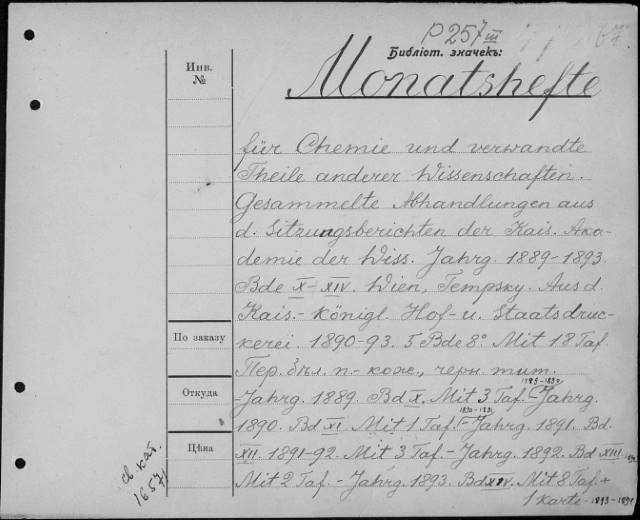 P 257 III
Библіот. значекъ:
Инв.
№
Monatshefte
für Chemie und verwandte
Theile anderer Wissenschaften.
Gesammelte Abhandlungen aus
d. Sitzungsberichten der Kais. Aka-
demie der Wiss. Jahrg. 1889-1893.
Bde X-XIV. Wien, Tempsky. Aus d.
Kais.-königl. Hof- u. Staatsdruc-
kerei. 1890-93. 5 Bde 8° Mit 18 Taf.
По заказу
Пер. бѣл. п.-кож., черн. тит.
1889-1890
Откуда
-Jahrg. 1889. Bd X. Mit 3 Taf. -Jahrg.
1890-1891
1890. Bd XI. Mit 1 Taf. - Jahrg. 1891. Bd.
Цѣна
XII. 1891-92. Mit 3 Taf. - Jahrg. 1892. Bd XIII.
Mit 2 Taf. - Jahrg. 1893. Bd XIV. Mit 8 Taf. +
1 Karte.
св. кат.
1657